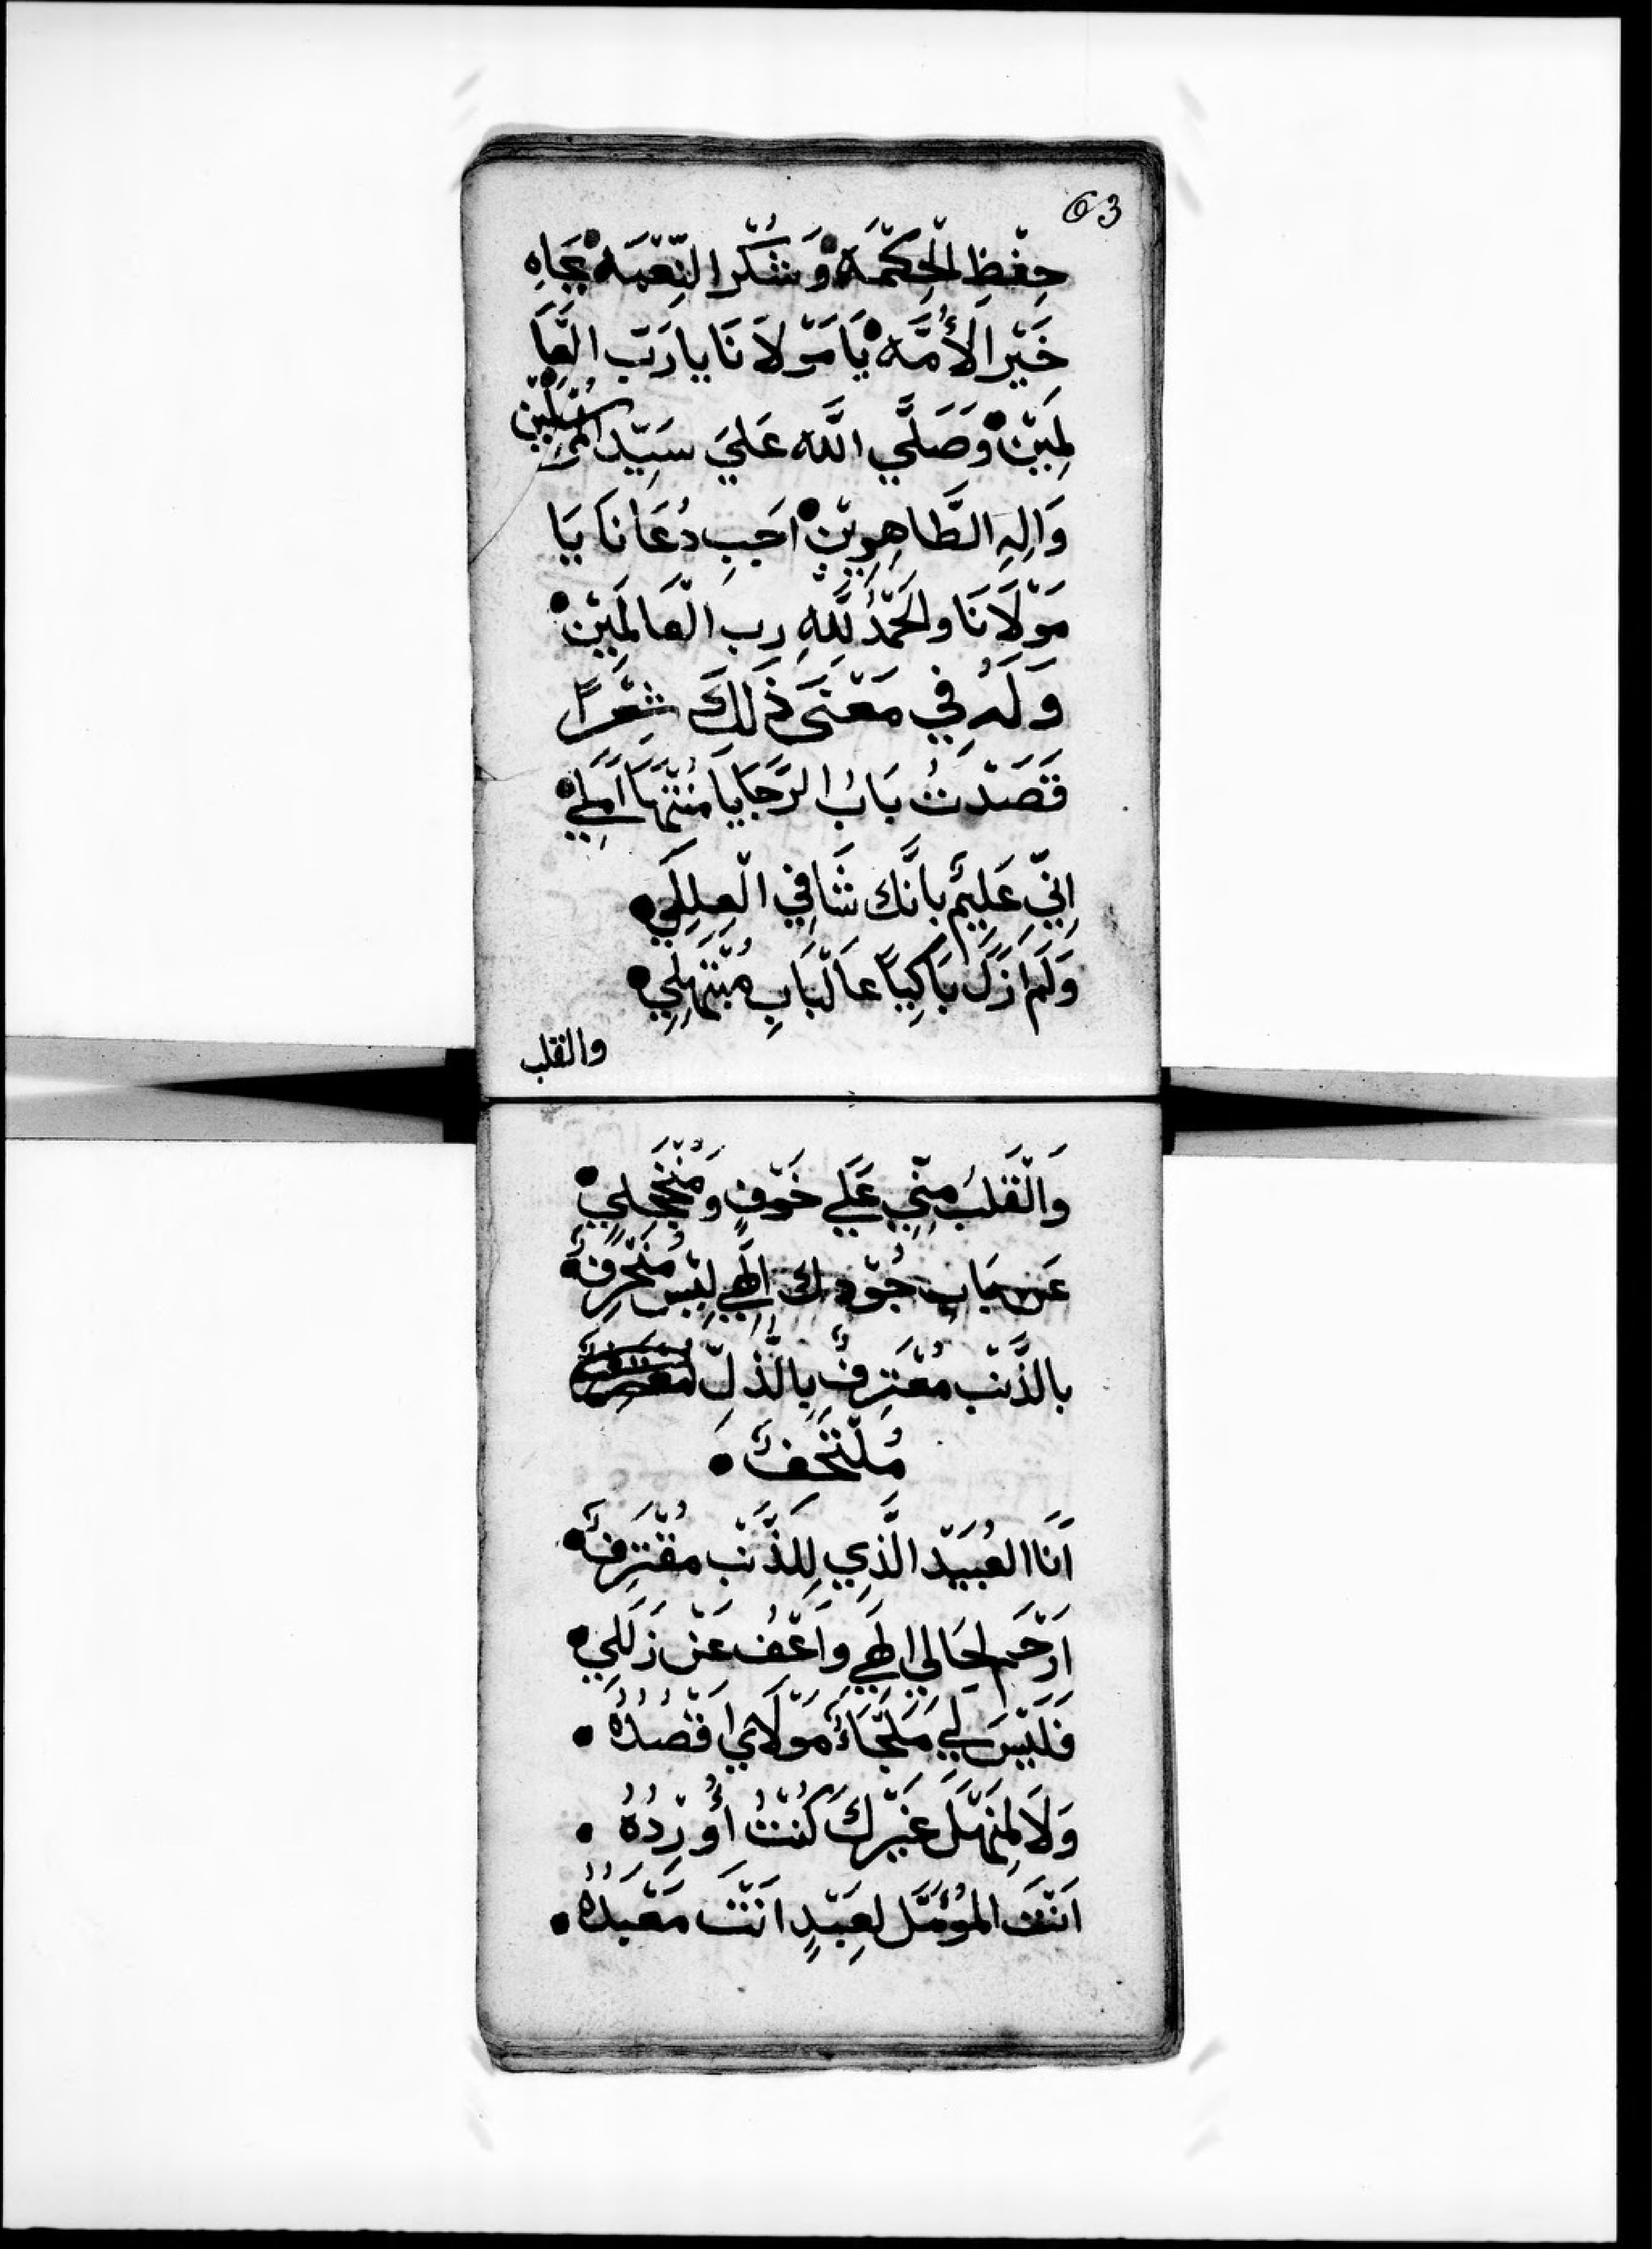 63
حِفْظِ الْحِكْمَهْ وَشُكْرِ النِّعْمَهْ بِجَاهِ
خَيْرِ الْأُمَّهْ يَا مَوْلَانَا يا رَبَّ الْعَا
لَمِيْنْ وَصَلَّي اللَّه عَلَيَ سَيِّد الْمُرْسَلِيْن
وَالِهِ الطَّاهِرِيْنْ اَجِبِ دُعَانَا يَا
مَوْلَانَا والْحَمْدُ لِلَّهِ رب الْعَالَمِيْنْ
وَلَهُ فِي مَعْنَى ذَلِكَ شِعْرًا
قَصَدْتُ بَابُ الرَّجَا يَا مُنْتَهَا اَمَلِيْ
اِنِّي عَلِيمٌ بانَّك شَافِي الْعِلَلِي
وَلَم ازَل بَاكِياً عَالْبَابِ مُبْتَهِلِي
والقلب
وَالْقَلبُ مِنِّي عَلَي خَوْفٍ وَمُنْخَجِلِيْ
عَن بَابِ جُوْدِك اِلَهِي لَيْس مُنْحَرِفٌ
بالذَّنْب مُعْتَرِفٌ بِالذُّلِّ
مُلْتَحِفٌ
اَنَا العُبَيْد الَّذِي لِلذَّنْب مُقْتَرِفٌ
اَرْحَم لِحَالِي اِلَهِي وَاعْفُ عَنْ زَلَلِي
فَلَيْسَ لِي مَلْجَاءٌ مَوْلَاي اقْصُدُهُ
وَلَا لِمَنْهَل غَيْرِكَ كُنْتُ أُوْرِدُهُ
اَنْتَ الْمُؤَمَّل لِعَبْدٍ اَنْتَ مَعْبَدُهُ